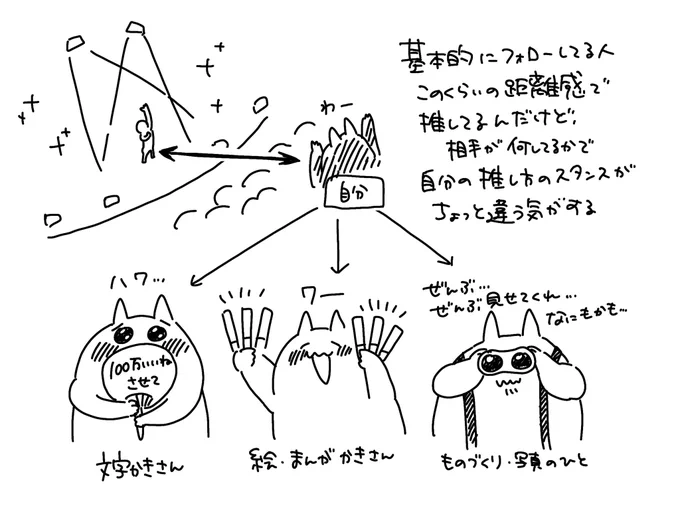 基本的にフォローしてる人
このくらいの距離感で
推してるんだけど、
相手が何してるかで
自分の推し方のスタンスが
ちょっと違う気がする
わー
自分
ハワ…
100万いいね
させて
文字かきさん
ワー
絵・まんがかきさん
ぜんぶ…
ぜんぶ見せてくれ…
なにもかも…
ものづくり・写真のひと